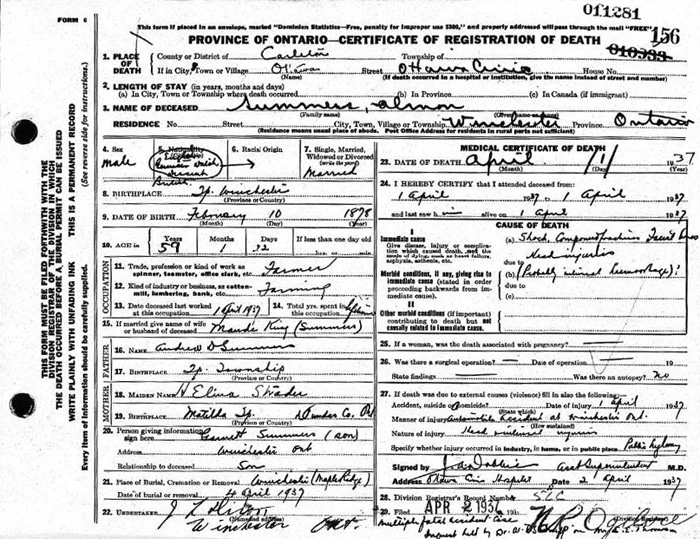 011281
FORM 6
This form if placed in an envelope, marked "Dominion Statistics—Free, penalty for improper use $300," and properly addressed will pass through the mail "FREE"
156
PROVINCE OF ONTARIO—CERTIFICATE OF REGISTRATION OF DEATH
010333
1. PLACE OF DEATH
County or District of Carleton Township of
If in City, Town or Village Ottawa Street Ottawa Civic House No.
(If death occurred in a hospital or institution, give the name instead of street and number)
2. LENGTH OF STAY (in years, months and days)
(a) In City, Town or Township where death occurred (b) In Province (c) In Canada (if immigrant)
3. NAME OF DECEASED Summers, Almon
(Family name) (Given name)
RESIDENCE No. Street City, Town, Village, Township Winchester Province Ontario
(Residence means usual place of abode. Post Office Address for residents in rural parts not sufficient)
4. Sex Male
5. Nationality
6. Racial Origin
7. Single, Married, Widowed or Divorced
(write the word)
Married
8. BIRTHPLACE Tp. Winchester
(Province or Country)
9. DATE OF BIRTH February 10 1878
(Month) (Day) (Year)
10. AGE in Years 59 Months 1 Days 22 If less than one day old
hrs. min.
OCCUPATION
11. Trade, profession or kind of work as spinner, teamster, office clerk, etc. Farmer
12. Kind of industry or business, as cotton-mill, lumbering, bank, etc. Farming
13. Date deceased last worked at this occupation 1 April 1937
14. Total yrs. spent in this occupation
15. If married give name of wife or husband of deceased Maude King (Summers)
FATHER
16. NAME Andrew D Summers
17. BIRTHPLACE Tp. Township
(Province or Country)
MOTHER
18. MAIDEN NAME
19. BIRTHPLACE Matilda Tp. Dundas Co.
(Province or Country)
20. Person giving information sign here Garnett Summers (son)
Address Winchester Ont
Relationship to deceased Son
21. Place of Burial, Cremation or Removal Winchester (Maple Ridge)
Date of burial or removal 4 April 1937
22. UNDERTAKER
Winchester Ont.
MEDICAL CERTIFICATE OF DEATH
23. DATE OF DEATH April 1 1937
(Month) (Day) (Year)
24. I HEREBY CERTIFY that I attended deceased from:
1 April 1937 to 1 April 1937
and last saw him alive on 1 April 1937
CAUSE OF DEATH
I
Immediate cause
Give disease, injury or complication which caused death, not the mode of dying, such as heart failure, asphyxia, asthenia, etc.
(a) Shock, Compound fractures
Head injuries
due to
Morbid conditions, if any, giving rise to immediate cause (stated in order proceeding backwards from immediate cause).
(b) (Probably internal haemorrhage)
due to
(c)
II
Other morbid conditions (if important) contributing to death but not causally related to immediate cause.
25. If a woman, was the death associated with pregnancy?
26. Was there a surgical operation? Date of operation
State findings Was there an autopsy? No
27. If death was due to external causes (violence) fill in also the following:
Accident, suicide or homicide? Date of injury 1 April 1937
(State which)
Manner of injury Automobile Accident at Winchester Ont.
(How sustained)
Nature of injury Head & internal injuries
Specify whether injury occurred in industry, in home, or in public place Public highway
Signed by Asst Superintendent M.D.
Address Ottawa Civic Hospital Date 2 April 1937
28. Division Registrar's Record Number 526
29. Filed APR 2 1937 193
Division Registrar
multiple fatal accident case
Inquest held by Dr. W.
THIS FORM MUST BE FILED FORTHWITH WITH THE DIVISION REGISTRAR OF THE DIVISION IN WHICH THE DEATH OCCURRED BEFORE A BURIAL PERMIT CAN BE ISSUED
WRITE PLAINLY WITH UNFADING INK THIS IS A PERMANENT RECORD
Every item of Information should be carefully supplied. (See reverse side for instructions.)